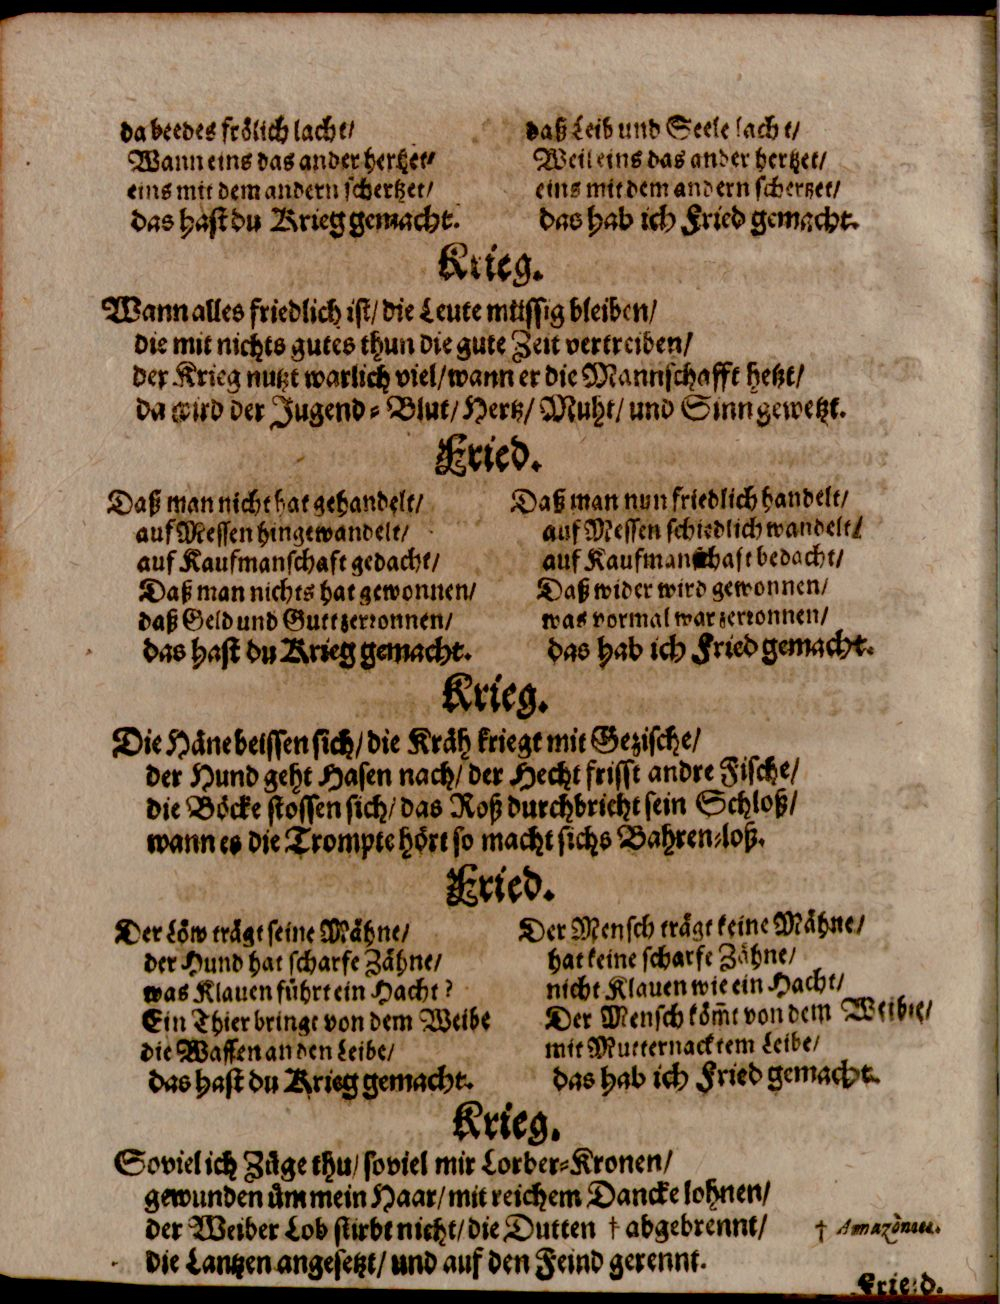 da beedes frölich lacht/
Wann eins das ander hertzet/
eins mit dem andern schertzet/
das hast du Krieg gemacht.
daß Leib und Seele lacht/
Weil eins das ander hertzet/
eins mit dem andern schertzet/
das hab ich Fried gemacht.
Krieg.
Wann alles friedlich ist/ die Leute müssig bleiben/
die mit nichts gutes thun die gute Zeit vertreiben/
der Krieg nutzt warlich viel/ wann er die Mannschafft hetzt/
da wird der Jugend-Blut/ Hertz/ Muht/ und Sinn gewetzt.
Fried.
Daß man nicht hat gehandelt/
auf Messen hingewandelt/
auf Kaufmanschaft gedacht/
Daß man nichts hat gewonnen/
daß Geld und Gutt zerronnen/
das hast du Krieg gemacht.
Daß man nun friedlich handelt/
auf Messen schiedlich wandelt/
auf Kaufmanschaft bedacht/
Daß wider wird gewonnen/
was vormal war zerronnen/
das hab ich Fried gemacht.
Krieg.
Die Häne beissen sich/ die Kräh kriegt mit Gezische/
der Hund geht Hasen nach/ der Hecht frisst andre Fische/
die Böcke stossen sich/ das Roß durchbricht sein Schloß/
wann es die Trompte hört so macht sichs Bahren-loß.
Fried.
Der Löw trägt seine Mähne/
der Hund hat scharfe Zähne/
was Klauen führt ein Hacht?
Ein Thier bringt von dem Weibe
die Waffen an den Leibe/
das hast du Krieg gemacht.
Der Mensch trägt keine Mähne/
hat keine scharfe Zähne/
nicht Klauen wie ein Hacht/
Der Mensch köm̃t von dem Weibe/
mit Mutternacktem Leibe/
das hab ich Fried gemacht.
Krieg.
So viel ich Züge thu/ soviel mir Lorber-Kronen/
gewunden üm mein Haar/ mit reichem Dancke lohnen/
der Weiber Lob stirbt nicht/ die Dutten † abgebrennt/
† Amazonen.
die Lantzen angesetzt/ und auf den Feind gerennt.
Fried.